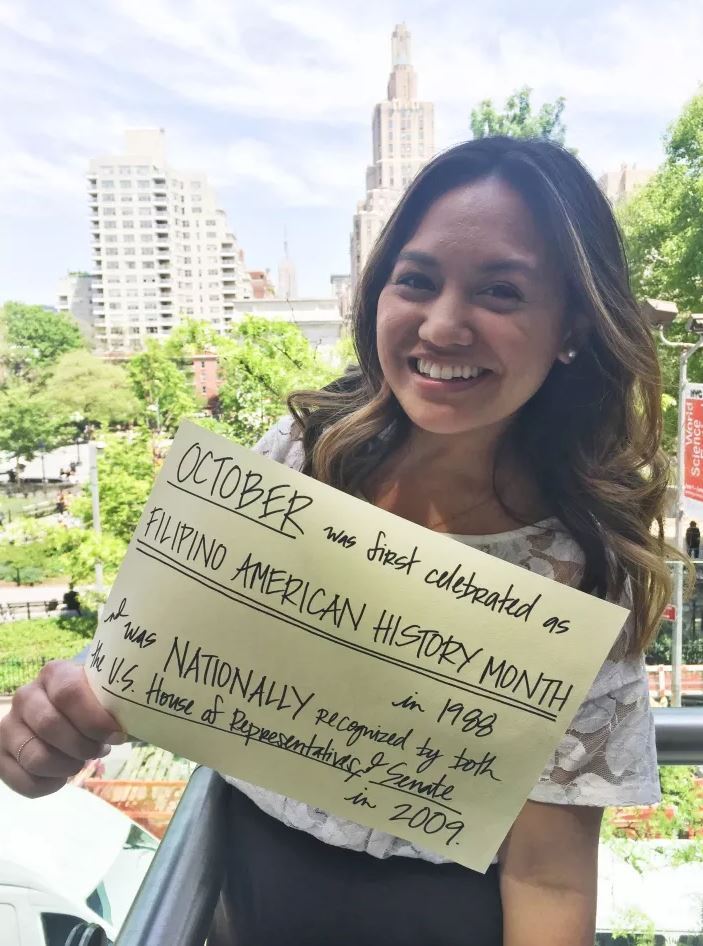 OCTOBER was first celebrated as
FILIPINO AMERICAN HISTORY MONTH
in 1988
was NATIONALLY recognized by both
the U.S. House of Representatives & Senate
in 2009.
NYC
World
Science